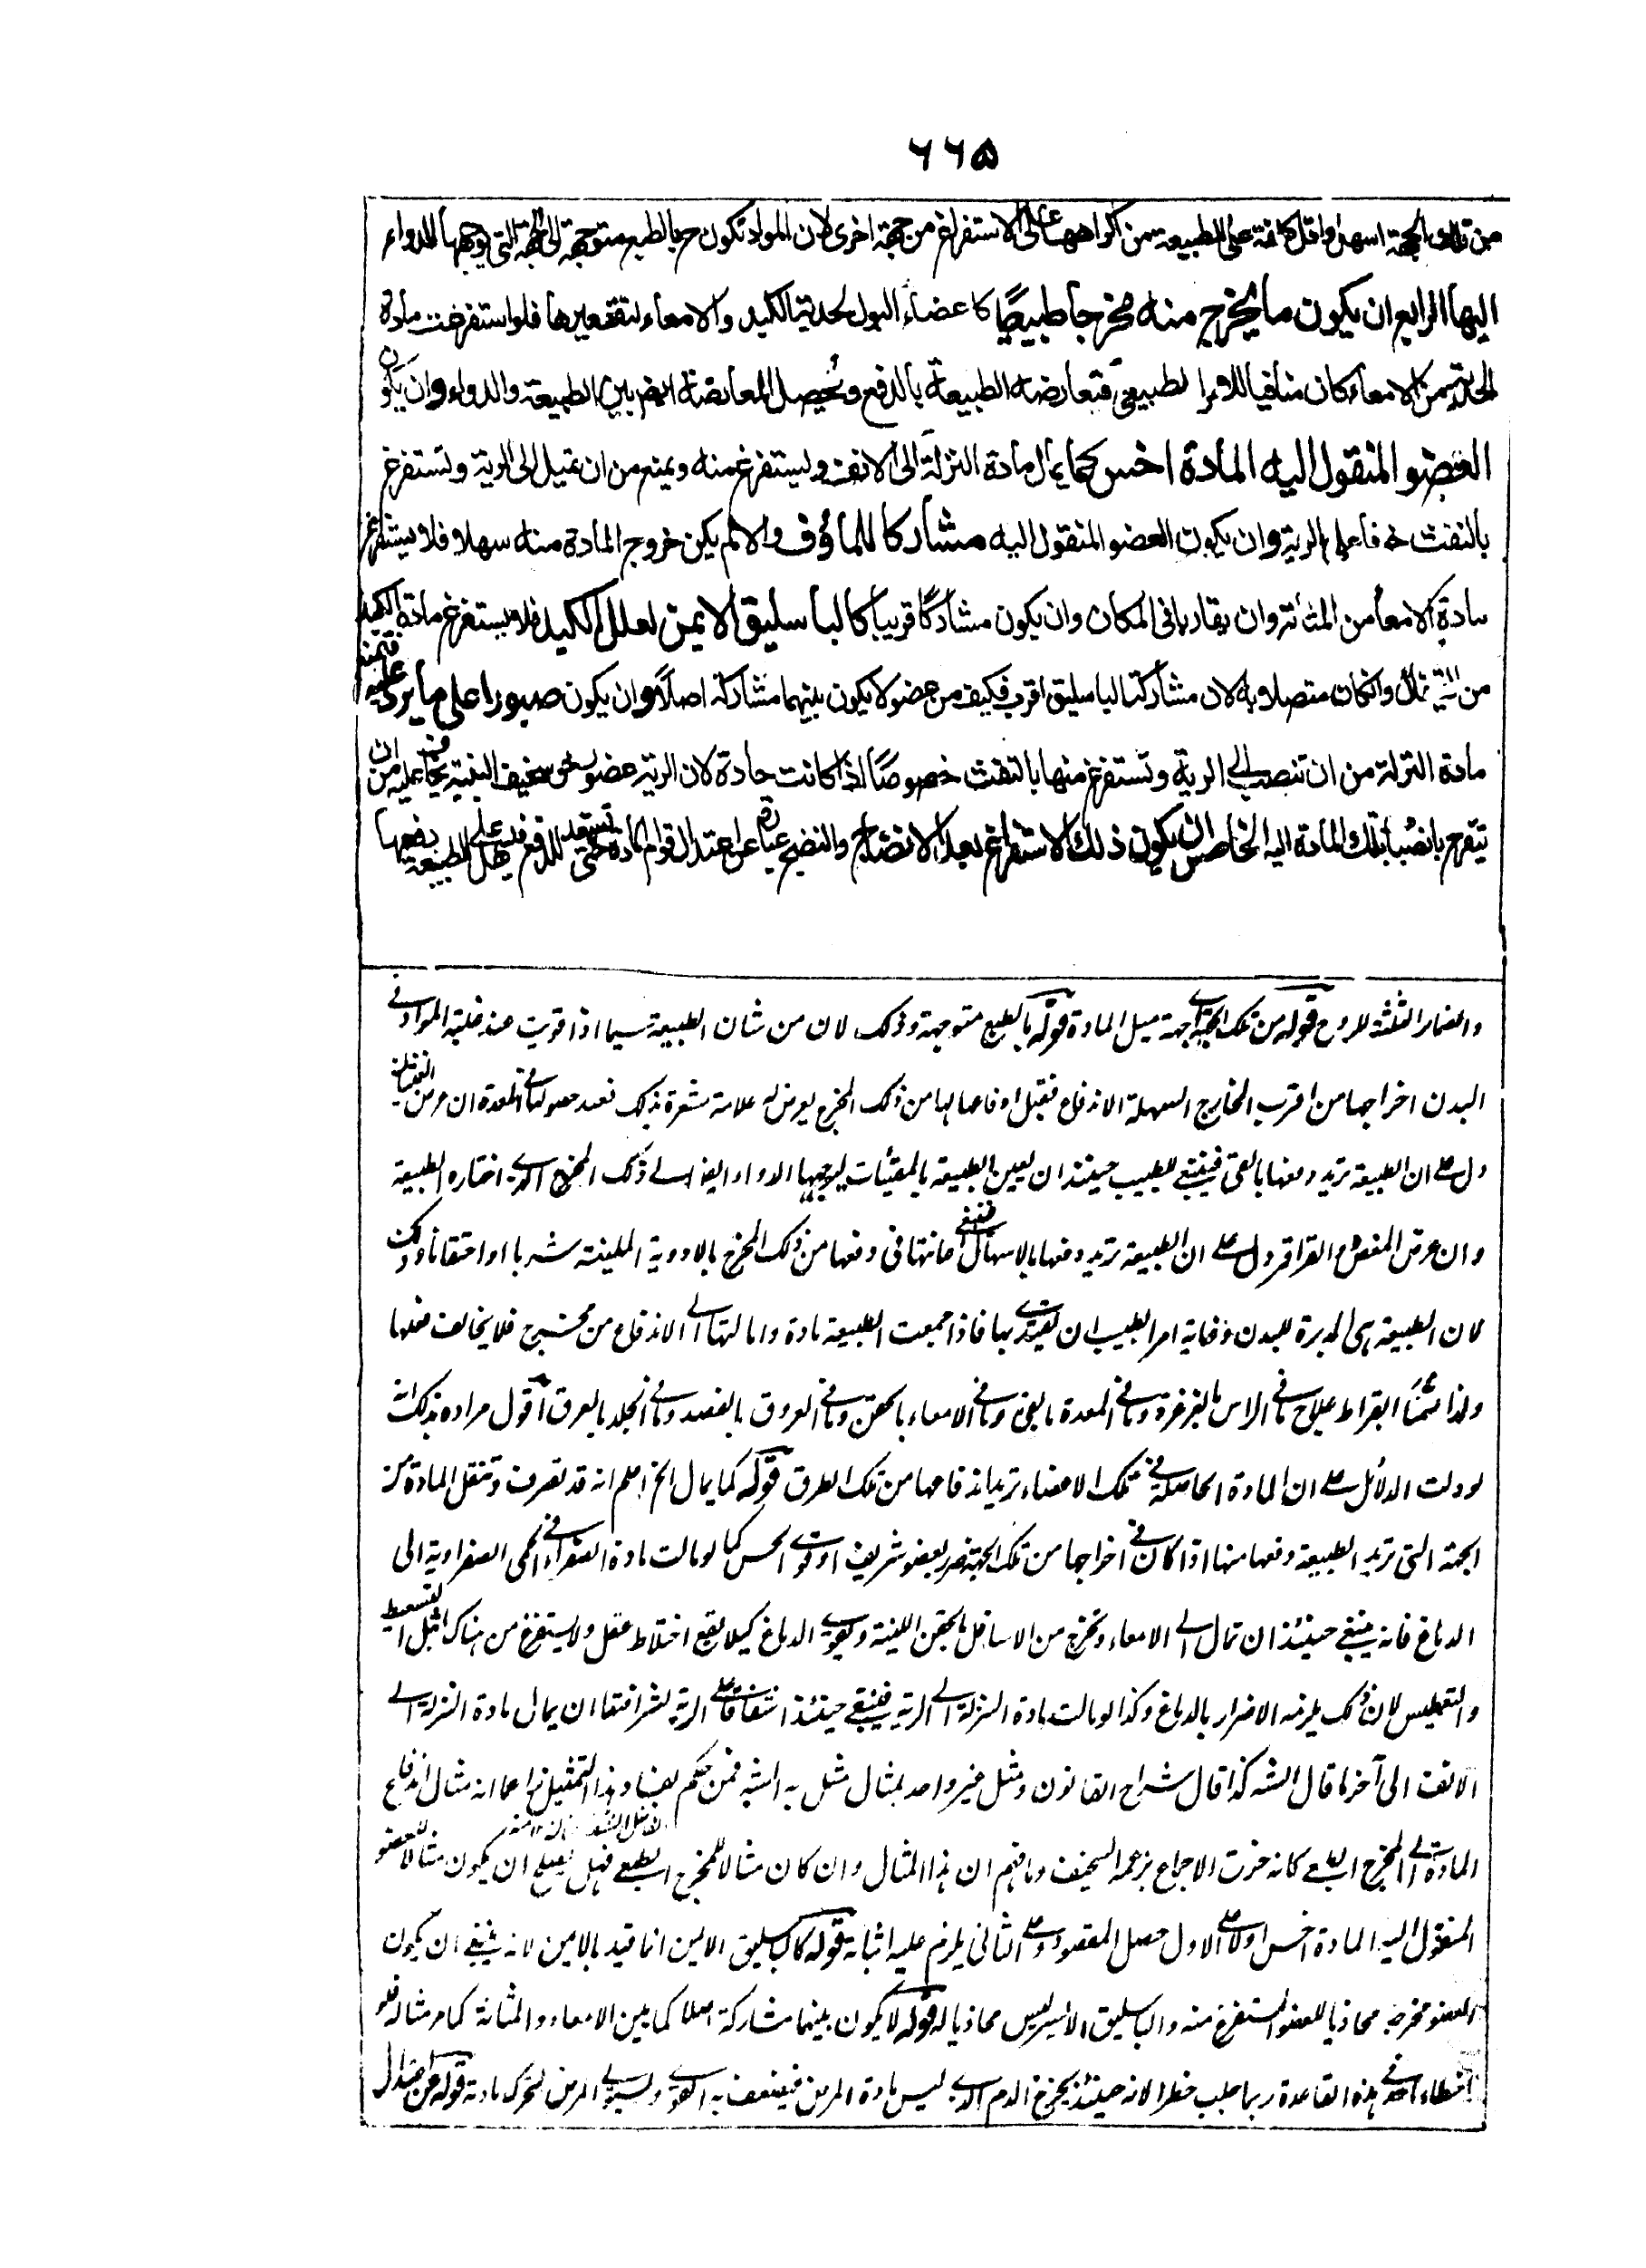 ٦٦٥
من تلك الجهة اسهل واقل كلفة على الطبيعة من اكراهها على الاستفراغ من جهة اخرى لان المواد تكون ح بالطبع متوجهة الى الجهة التى يوجهها الدواء
اليها الرابع ان يكون ما يخرج منه مخرجا طبيعيا كاعضاء البول لحدبة الكبد والامعاء لتقعيرها فلو استفرغت مادة
الحدبة من الامعاء كان منافيا للامر الطبيعى فتعارضه الطبيعة بالدفع ويحصل المعارضة ايضر بين الطبيعة والدواء وان يكون
العضو المنقول اليه المادة اخس كما يمال مادة النزلة الى الانف وليستفرغ منه ويمنع من ان تميل الى الرية وتستفرغ
بالنفث خوفا على الرية وان يكون العضو المنقول اليه مشاركا للماؤف والا لم يكن خروج المادة منه سهلا فلا يستفرغ
مادة الامعاء من المثانة وان يقاربا فى المكان وان يكون مشاركا قريبا كالباسليق الايمن لعلل الكبد فلا يستفرغ مادة الكبد
من وان كان متصلا به لان مشاركة الباسليق اقرب فكيف من عضو لا يكون بينهما مشاركة اصلا وان يكون صبورا على ما يرد عليه فتمنع
مادة النزلة من ان تنصب الى الرية وتستفرغ منها بالنفث خصوصا اذا كانت حادة لان الرية عضو سخيف البنية يخاف عليه من ان
يتقرح بانصباب تلك المادة اليه الخامس ان يكون ذلك الاستفراغ بعد الانضاج والنضج عبارة عن اعتدال قوام المادة حتى تستعد للدفع فيسهل على الطبيعة دفعها
والمضار الثلثة للروح قوله من تلك الجهة اى جهة ميل المادة قوله بالطبع متوجهة وذلك لان من شان الطبيعة سيما اذا قويت عند غلبة المواد فى
البدن اخراجها من اقرب المخارج السهلة الاندفاع فقبل اندفاعها لها من ذلك المخرج يعرض له علامة مشعرة بذلك فعند حصولها فى المعدة ان عرض الغثيان
دل على ان الطبيعة تريد دفعها بالقئ فينبغى للطبيب حينئذ ان يعين الطبيعة بالمقيئات ليوجهها الدواء ايضا الى ذلك المخرج الذى اختاره الطبيعة
وان عرض المغص والقراقر دل على ان الطبيعة تريد دفعها بالاسهال فينبغى اعانتها فى دفعها من ذلك المخرج بالادوية الملينة شربا او احتقانا وذلك
لان الطبيعة هى المدبرة للبدن وغاية امر الطبيب ان يقتدى بها فاذا جمعت الطبيعة مادة وامالتها الى الاندفاع من مخرج فلا يخالف فعلها
ولذا ابقراط علاج ما فى الراس بالغرغرة وما فى المعدة بالقئ وما فى الامعاء بالحقن وما فى العروق بالفصد وما فى الجلد بالعرق اقول مراده بذلك انه
لو دلت الدلائل على ان المادة الحاصلة فى تلك الاعضاء تريد اندفاعها من تلك الطرق قوله كما يمال الخ اعلم انه قد تصرف وتنقل المادة من
الجهة التى تريد الطبيعة دفعها منها اذا كان فى اخراجها من تلك الجهة ضرر بعضو شريف او قوى الحس كما لو مالت مادة الصفراء فى الحمى الصفراوية الى
الدماغ فانه ينبغى حينئذ ان تمال الى الامعاء وتخرج من الاسافل بالحقن اللينة ويقوى الدماغ كيلا يقع اختلاط عقل ولا يستفرغ من هناك بمثل التسعيط
والتعطيس لان ذلك يلزمه الاضرار بالدماغ وكذا لو مالت مادة النزلة الى الرية فينبغى حينئذ اشفاقا على الرية لشرافتها ان يمال مادة النزلة الى
الانف الى آخر ما قال الشه كذا قال شراح القانون ومثل غير واحد بمثال مثل به الشه فمن حكم بفساد هذا التمثيل زاعما انه مثال اندفاع
المادة الى المخرج الطبعى كانه خرق الاجماع بزعمه السخيف وما فهم ان هذا المثال وان كان مثالا للمخرج الطبعى فهل يصلح ان يكون مثالا للعضو
المنقول اليه المادة اخس اولا على الاول حصل المقصود وعلى الثانى يلزم عليه اثباته قوله كالباسليق الايمن انما قيد بالايمن لانه ينبغى ان يكون
العضو مخرجه محاذيا للعضو المستفرغ منه والباسليق الايسر ليس محاذيا له قوله لا يكون بينهما مشاركة اصلا كما بين الامعاء والمثانة كما مر مثاله فلو
اخطاء احد فى هذه القاعدة ربما جلب خطرا لانه حينئذ يخرج الدم الذى ليس مادة المرض فيضعف به القوى ويستولى المرض لتحرك مادته قوله عن اعتدال